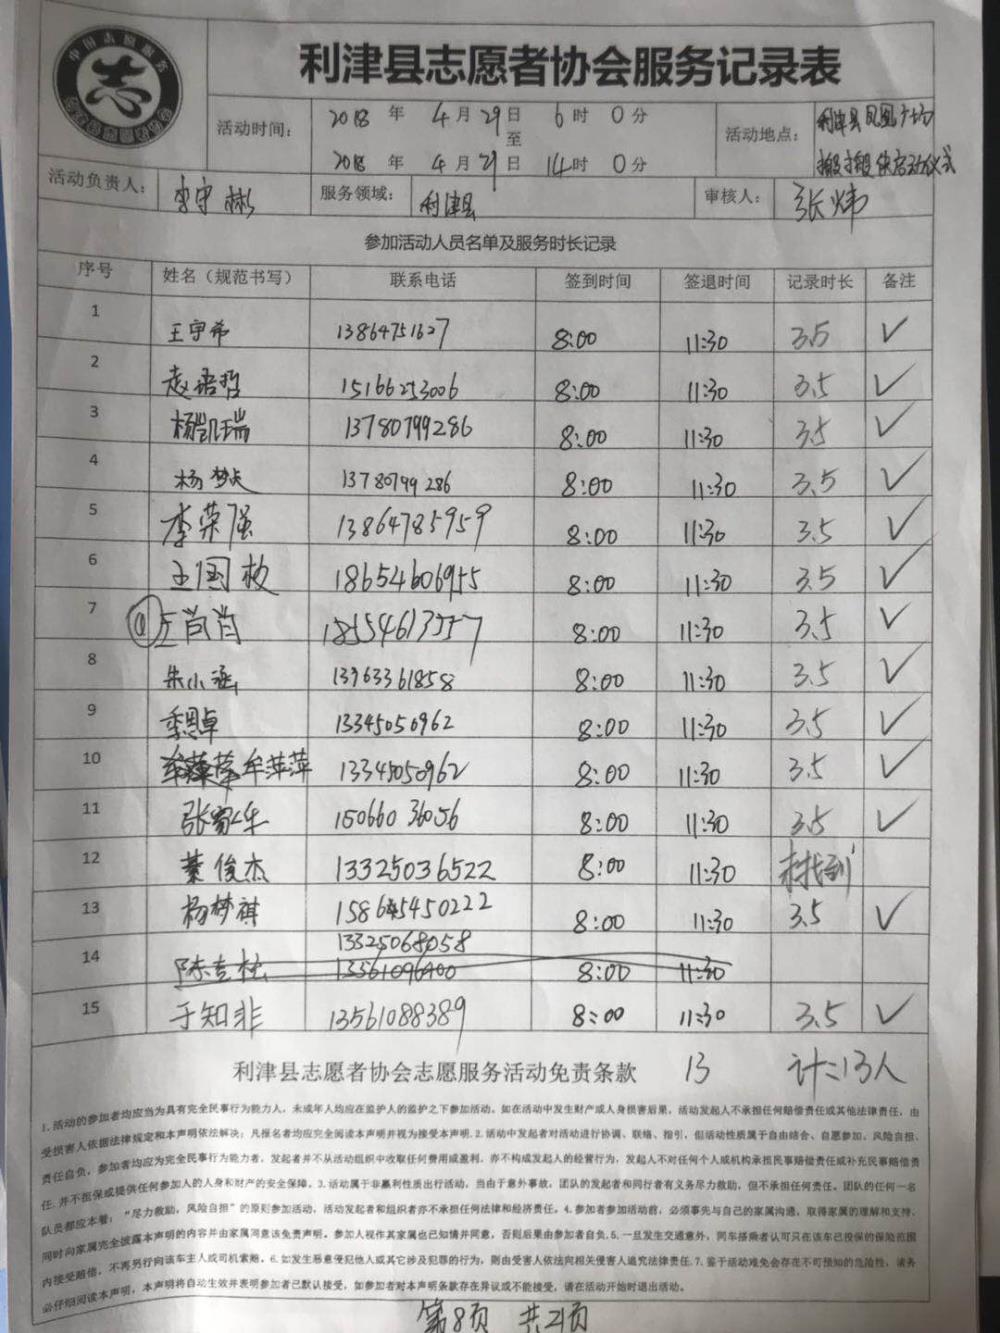 中国志愿服务
志
利津县志愿者协会服务记录表
活动时间: 2018 年 4 月 29 日 6 时 0 分
至
2018 年 4 月 29 日 14 时 0 分
活动地点: 利津县凤凰广场
启动仪式
活动负责人: 李守彬 服务领域: 利津县 审核人: 张炜
参加活动人员名单及服务时长记录
序号 姓名（规范书写） 联系电话 签到时间 签退时间 记录时长 备注
1 王宇希 13864751627 8:00 11:30 3.5 ✓
2 赵语哲 15166253006 8:00 11:30 3.5 ✓
3 杨凯瑞 13780799286 8:00 11:30 3.5 ✓
4 杨梦 13780799286 8:00 11:30 3.5 ✓
5 李荣强 13864785959 8:00 11:30 3.5 ✓
6 王国枚 18654606955 8:00 11:30 3.5 ✓
7 左肖肖 18554613557 8:00 11:30 3.5 ✓
8 朱小涵 13963361858 8:00 11:30 3.5 ✓
9 季思卓 13345050962 8:00 11:30 3.5 ✓
10 牟萍萍 13345050962 8:00 11:30 3.5 ✓
11 张家华 15066036056 8:00 11:30 3.5 ✓
12 綦俊杰 13325036522 8:00 11:30 未找到
13 杨梦祺 158645450222 8:00 11:30 3.5 ✓
13325068058
14 陈 13561096900 8:00 11:30
15 于知非 13561088389 8:00 11:30 3.5 ✓
利津县志愿者协会志愿服务活动免责条款 13 计:13人
1.活动的参加者均应当为具有完全民事行为能力人，未成年人均应在监护人的监护之下参加活动。如在活动中发生财产或人身损害后果，活动发起人不承担任何赔偿责任或其他法律责任，由
受损害人依据法律规定和本声明依法解决；凡报名者均应完全阅读本声明并视为接受本声明.2.活动中发起者对活动进行协调、联络、指引，但活动性质属于自由结合、自愿参加、风险自担、
责任自负，参加者均应为完全民事行为能力者，发起者并不从活动组织中收取任何费用或盈利，亦不构成发起人的经营行为，发起人不对任何个人或机构承担民事赔偿责任或补充民事赔偿责
任.并不担保或提供任何参加人的人身和财产的安全保障。3.活动属于非赢利性质出行活动，当由于意外事故，团队的发起者和同行者有义务尽力救助，但不承担任何责任。团队的任何一名
队员都应本着：“尽力救助，风险自担”的原则参加活动，活动发起者和组织者亦不承担任何法律和经济责任。4.参加者参加活动前，必须事先与自己的家属沟通，取得家属的理解和支持，
同时向家属完全披露本声明的内容并由家属同意该免责声明。参加人视作其家属也已知情并同意，否则后果由参加者自负.5.一旦发生交通意外，同车搭乘者认可只在该车已投保的保险范围
内接受赔偿，不再另行向该车主人或司机索赔。6.如发生恶意侵犯他人或其它涉及犯罪的行为，则由受害人依法向相关侵害人追究法律责任.7.鉴于活动难免会存在不可预知的危险性，请务
必仔细阅读本声明，本声明将自动生效并表明参加者已默认接受，如参加者对本声明条款存在异议或不能接受，请在活动开始时退出活动。
第8页 共21页